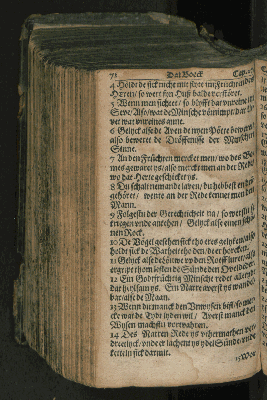 72 Dat Boeck Cap.
4 Holdt he sick nicht mit stete in der Fruchten des
HEren / so wert syn Huß balde vorstöret.
5 Wenn men sichtet / so blyfft dar vnreine in
Seve / Also / wat de Minsche vörnimpt / dar
vet wat vnreines anne.
6 Gelyck alse de Aven de nyen Pötte beweret /
also beweret de Dröffenisse der Minschen
Sinne.
7 An den Früchten mercket men / wo des Bo-
mes gewaret ys / also mercket men an der Rede /
wo dat Herte geschicket ys.
8 Du schalt nemande laven / du hebbest en den
gehöret / wente an der Rede kennet men den
Mann.
9 Folgestu der Gerechticheit na / so werstu se
kriegen vnde antehen / Gelyck alse einen schö-
nen Rock.
10 De Vögel gesellen sick tho eres gelyken / also
holdt sick de Warheit tho den / de er hörcken.
11 Gelyck alse de Löuwe vp den Roeff luret / also
ergrypt thom lesten de Sünde den
12 Ein Godtfrüchtig Minsche redet alletydt
dat heylsam ys. Ein Narre averst ys wandel-
bar alse de Maan.
13 Wenn du manck den Vnwysen bist / so mer-
cke wat de Tydt lyden wil / Averst manck den
Wysen machstu vortwahren.
14 Des Narren Rede ys vthermathen ver-
dretlyck / vnde er lachent ys ydel Sünde / vnde
ketteln sick darmit.